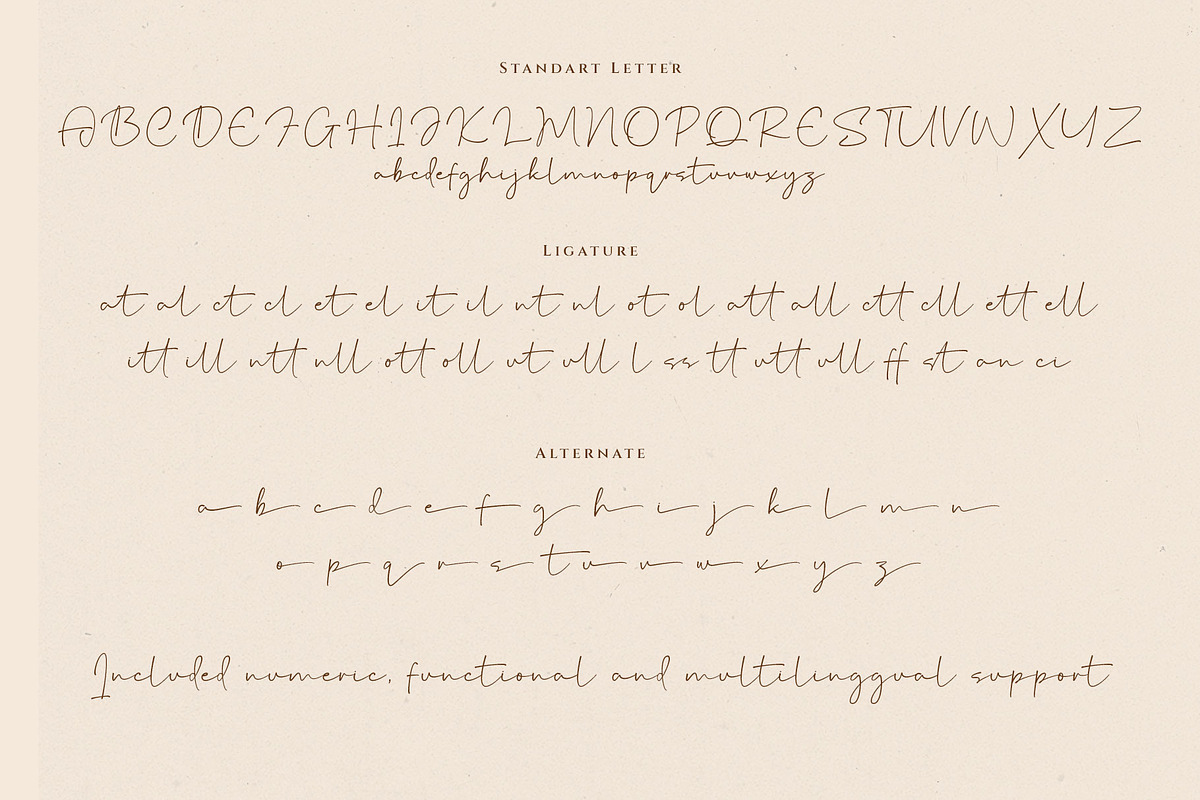 Standart Letter
ABCDEFGHIJKLMNOPQRESTUVWXYZ
abcdefghijklmnopqrstuvwxyz
Ligature
at al ct cl et el it il nt nl ot ol att all ctt cll ett ell
itt ill ntt nll ott oll ut ull l ss tt utt ull ff st an ci
Alternate
a b c d e f g h i j k l m n
o p q r s t u v w x y z
Included numeric, functional and multilinggual support